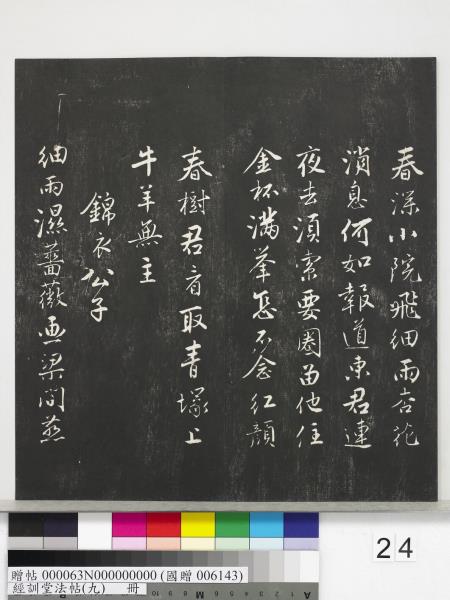 春深小院飛細雨杏花
消息何如報道東君連
夜去須索要圈留他住
金杯滿挙怎不念紅顔
春樹君看取青塚上
牛羊無主
錦衣公子
細雨濕薔薇画梁間燕
24
贈帖 000063N000000000 (國贈 006143)
經訓堂法帖(九) 冊